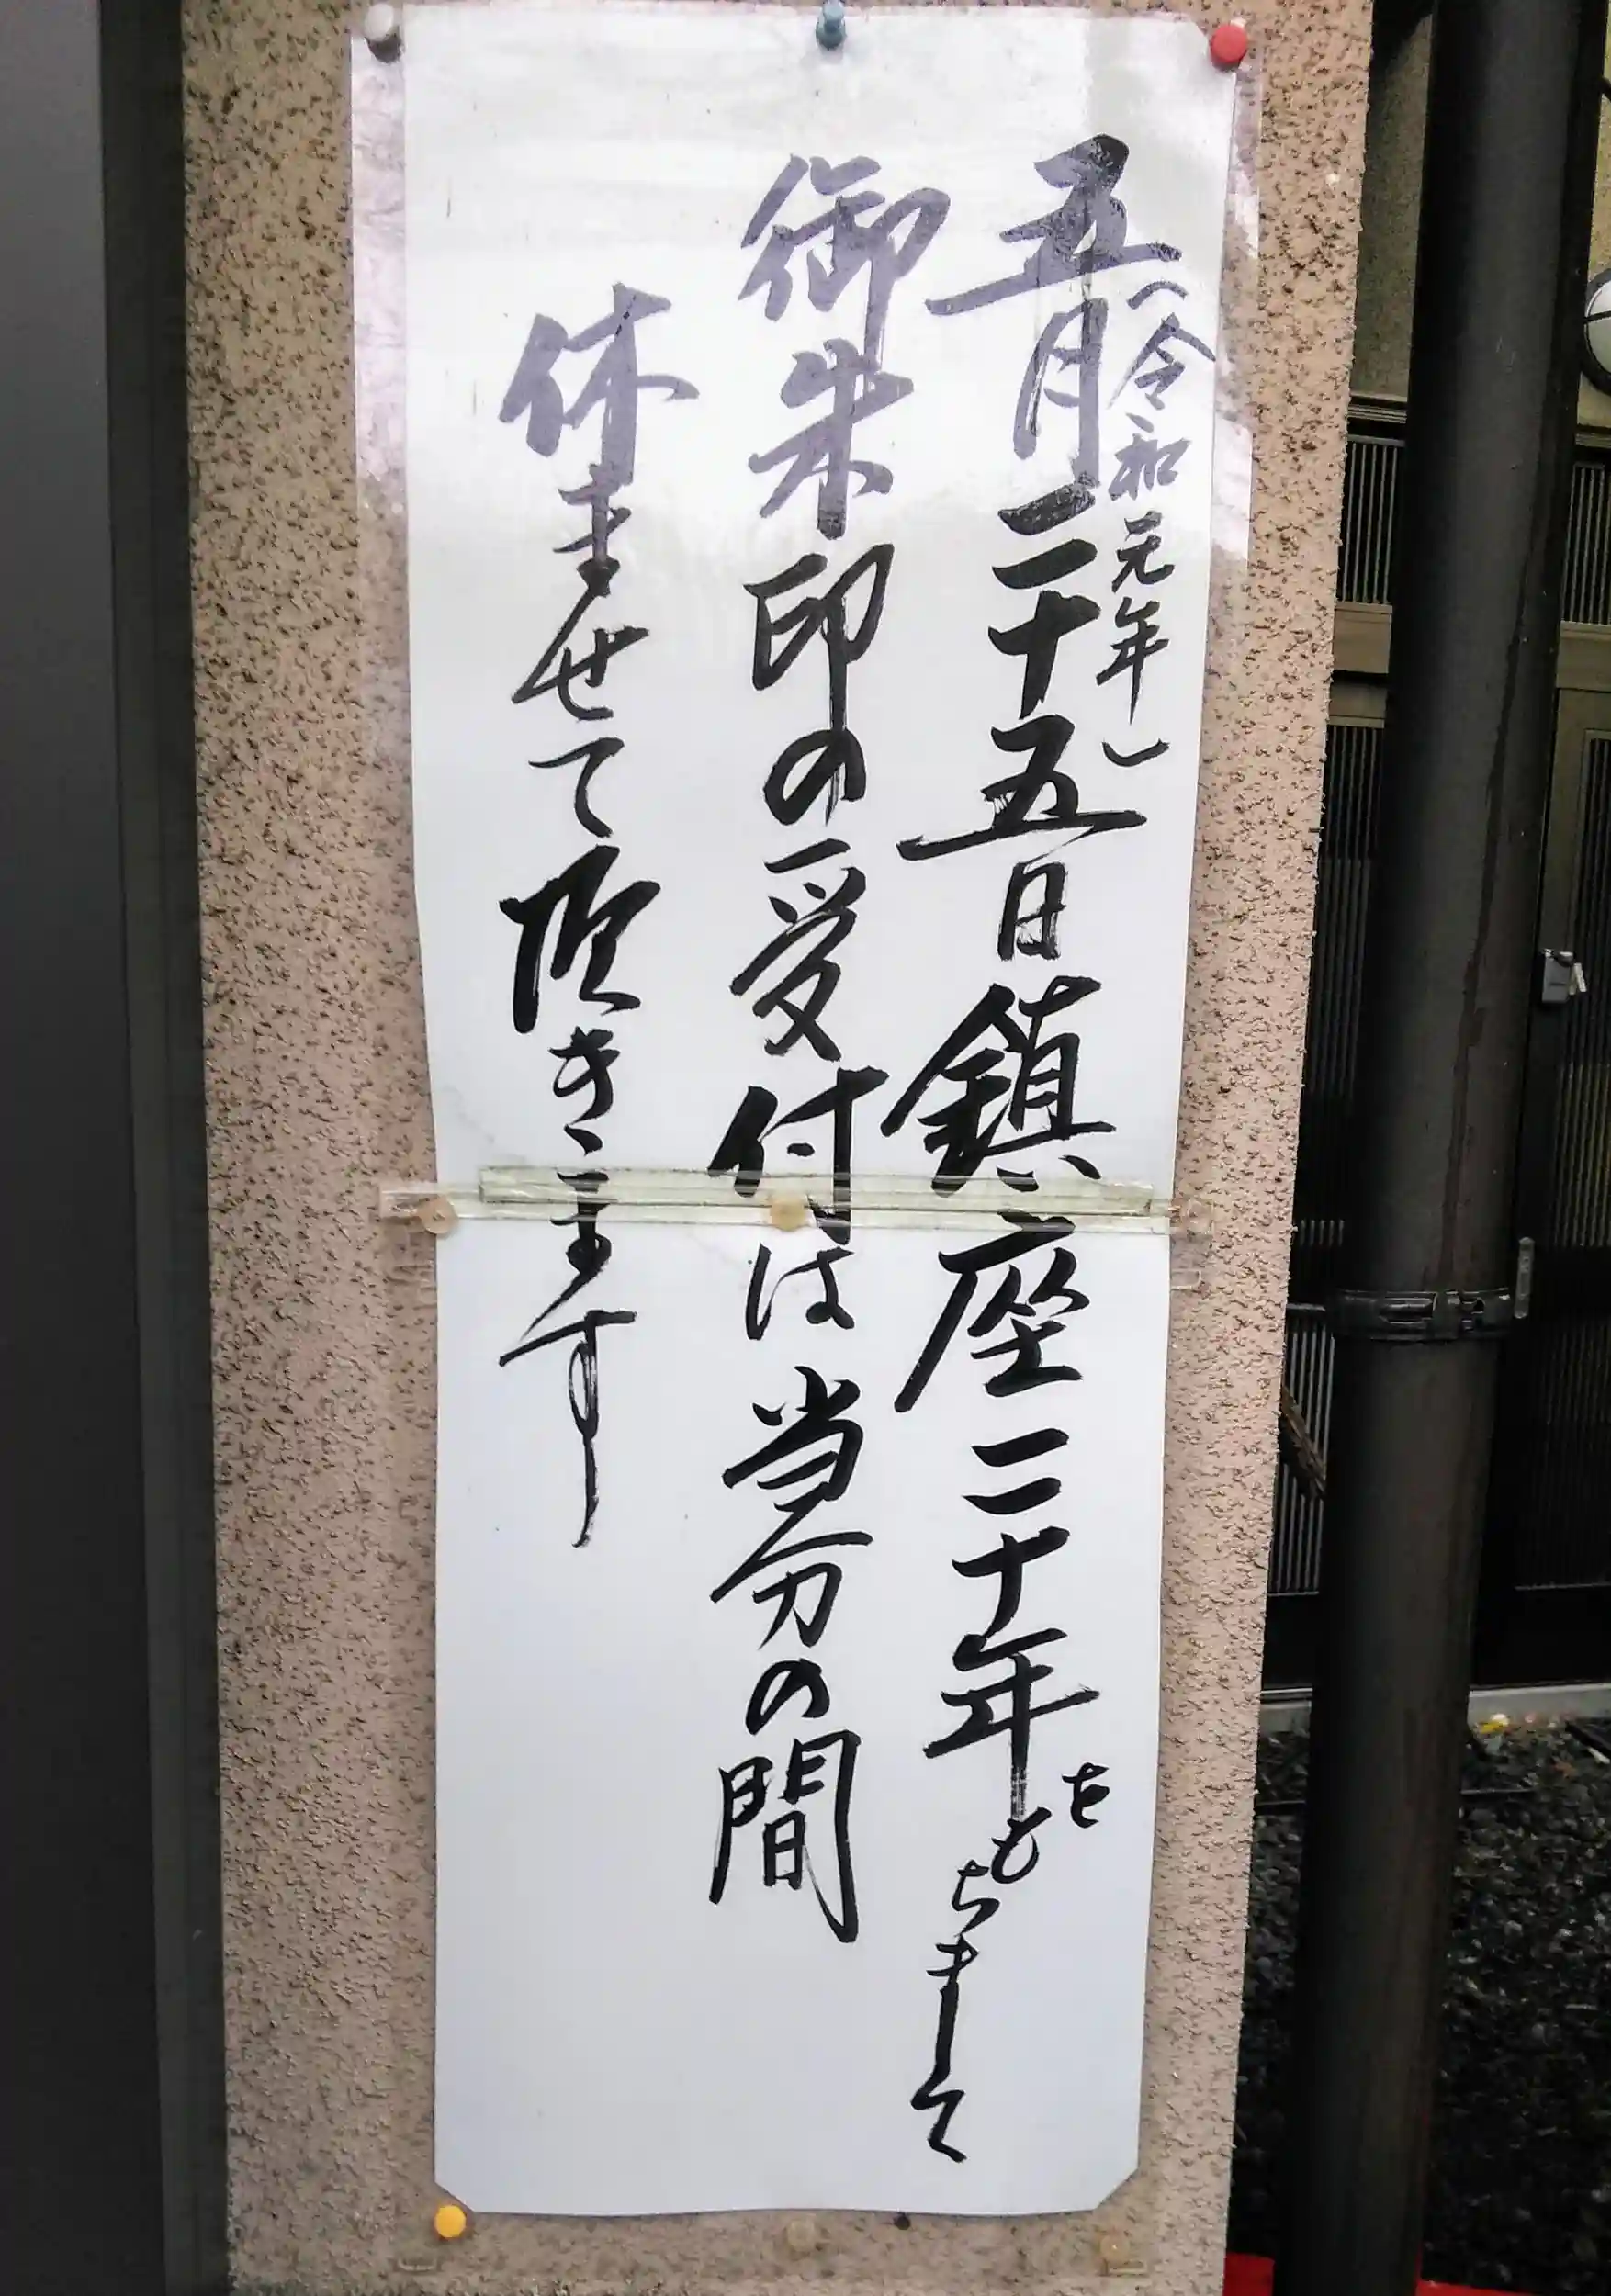 （令和元年）
五月二十五日鎮座二十年をもちまして
御朱印の受付は当分の間
休ませて頂きます